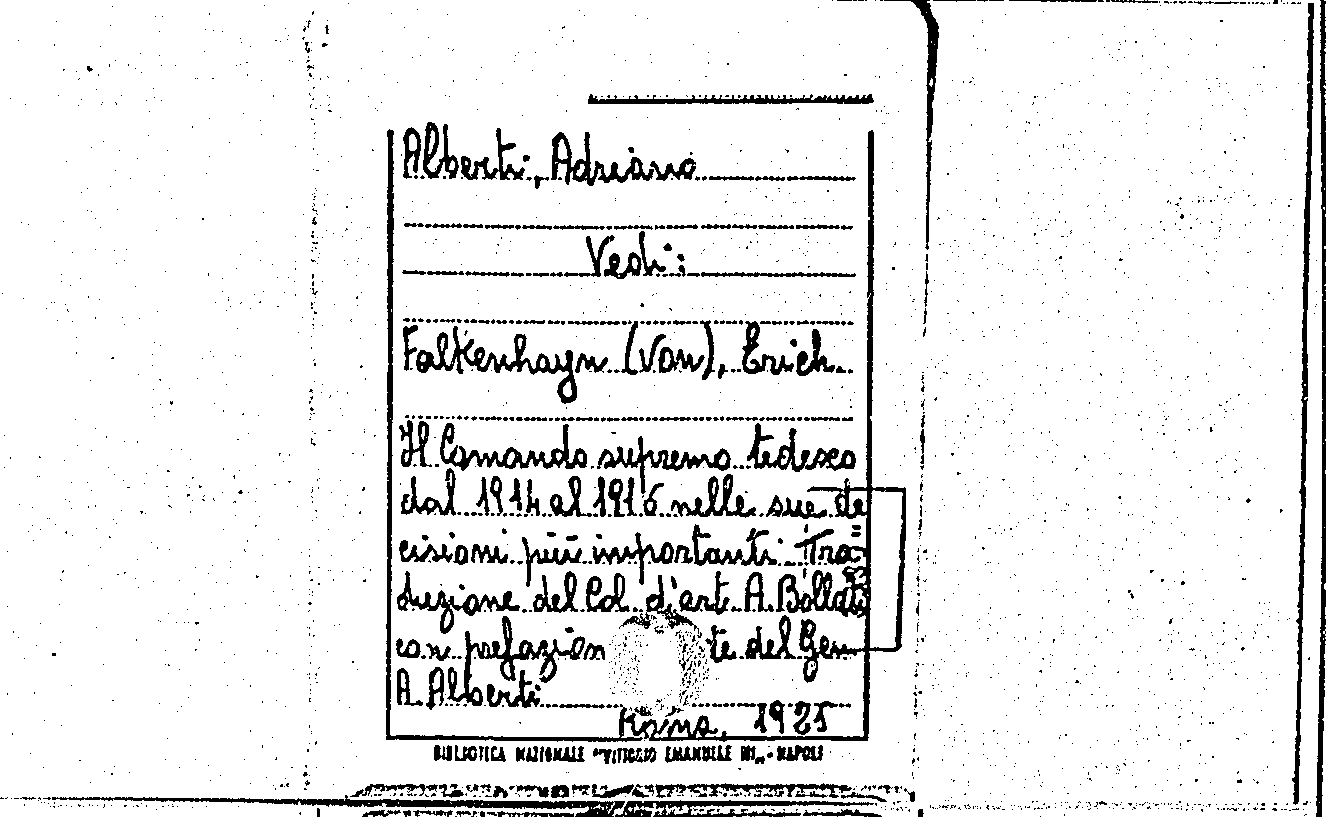 Alberti, Adriano
Vedi:
Falkenhayn (Von), Erich.
Il Comando supremo tedesco
dal 1914 al 1916 nelle sue de
cisioni più importanti. Tra=
duzione del Col. d'art. A. Bollati
con prefazion te del Gen.
A. Alberti
Roma, 1925
BIBLIOTECA NAZIONALE "VITTORIO EMANUELE III„ - NAPOLI